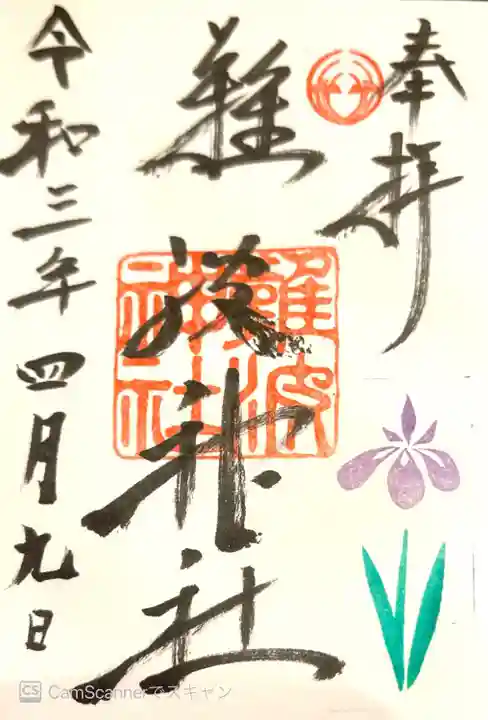 奉拝
難波神社
難波
神社
令和三年四月九日
CS CamScannerでスキャン